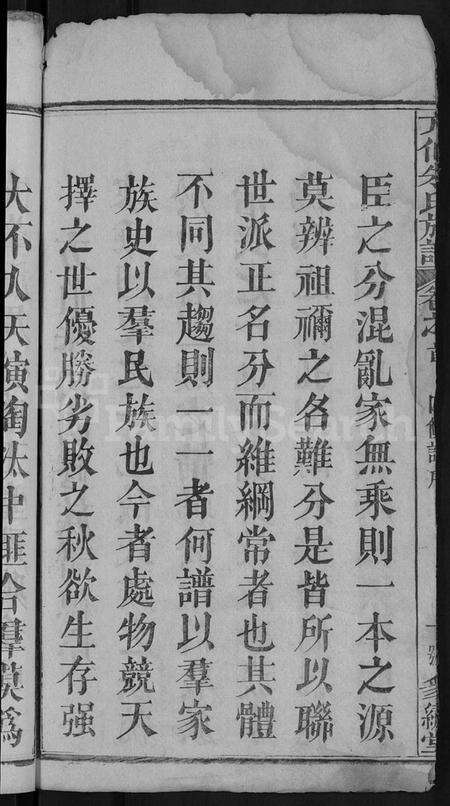 臣之分混亂家無乘則一本之源
莫辨祖禰之名難分是皆所以聯
世派正名分而維綱常者也其體
不同其趨則一一者何譜以羣家
族史以羣民族也今者處物競天
擇之世優勝劣敗之秋欲生存强
大不入天演陶汰中匪合羣莫爲
FamilySearch